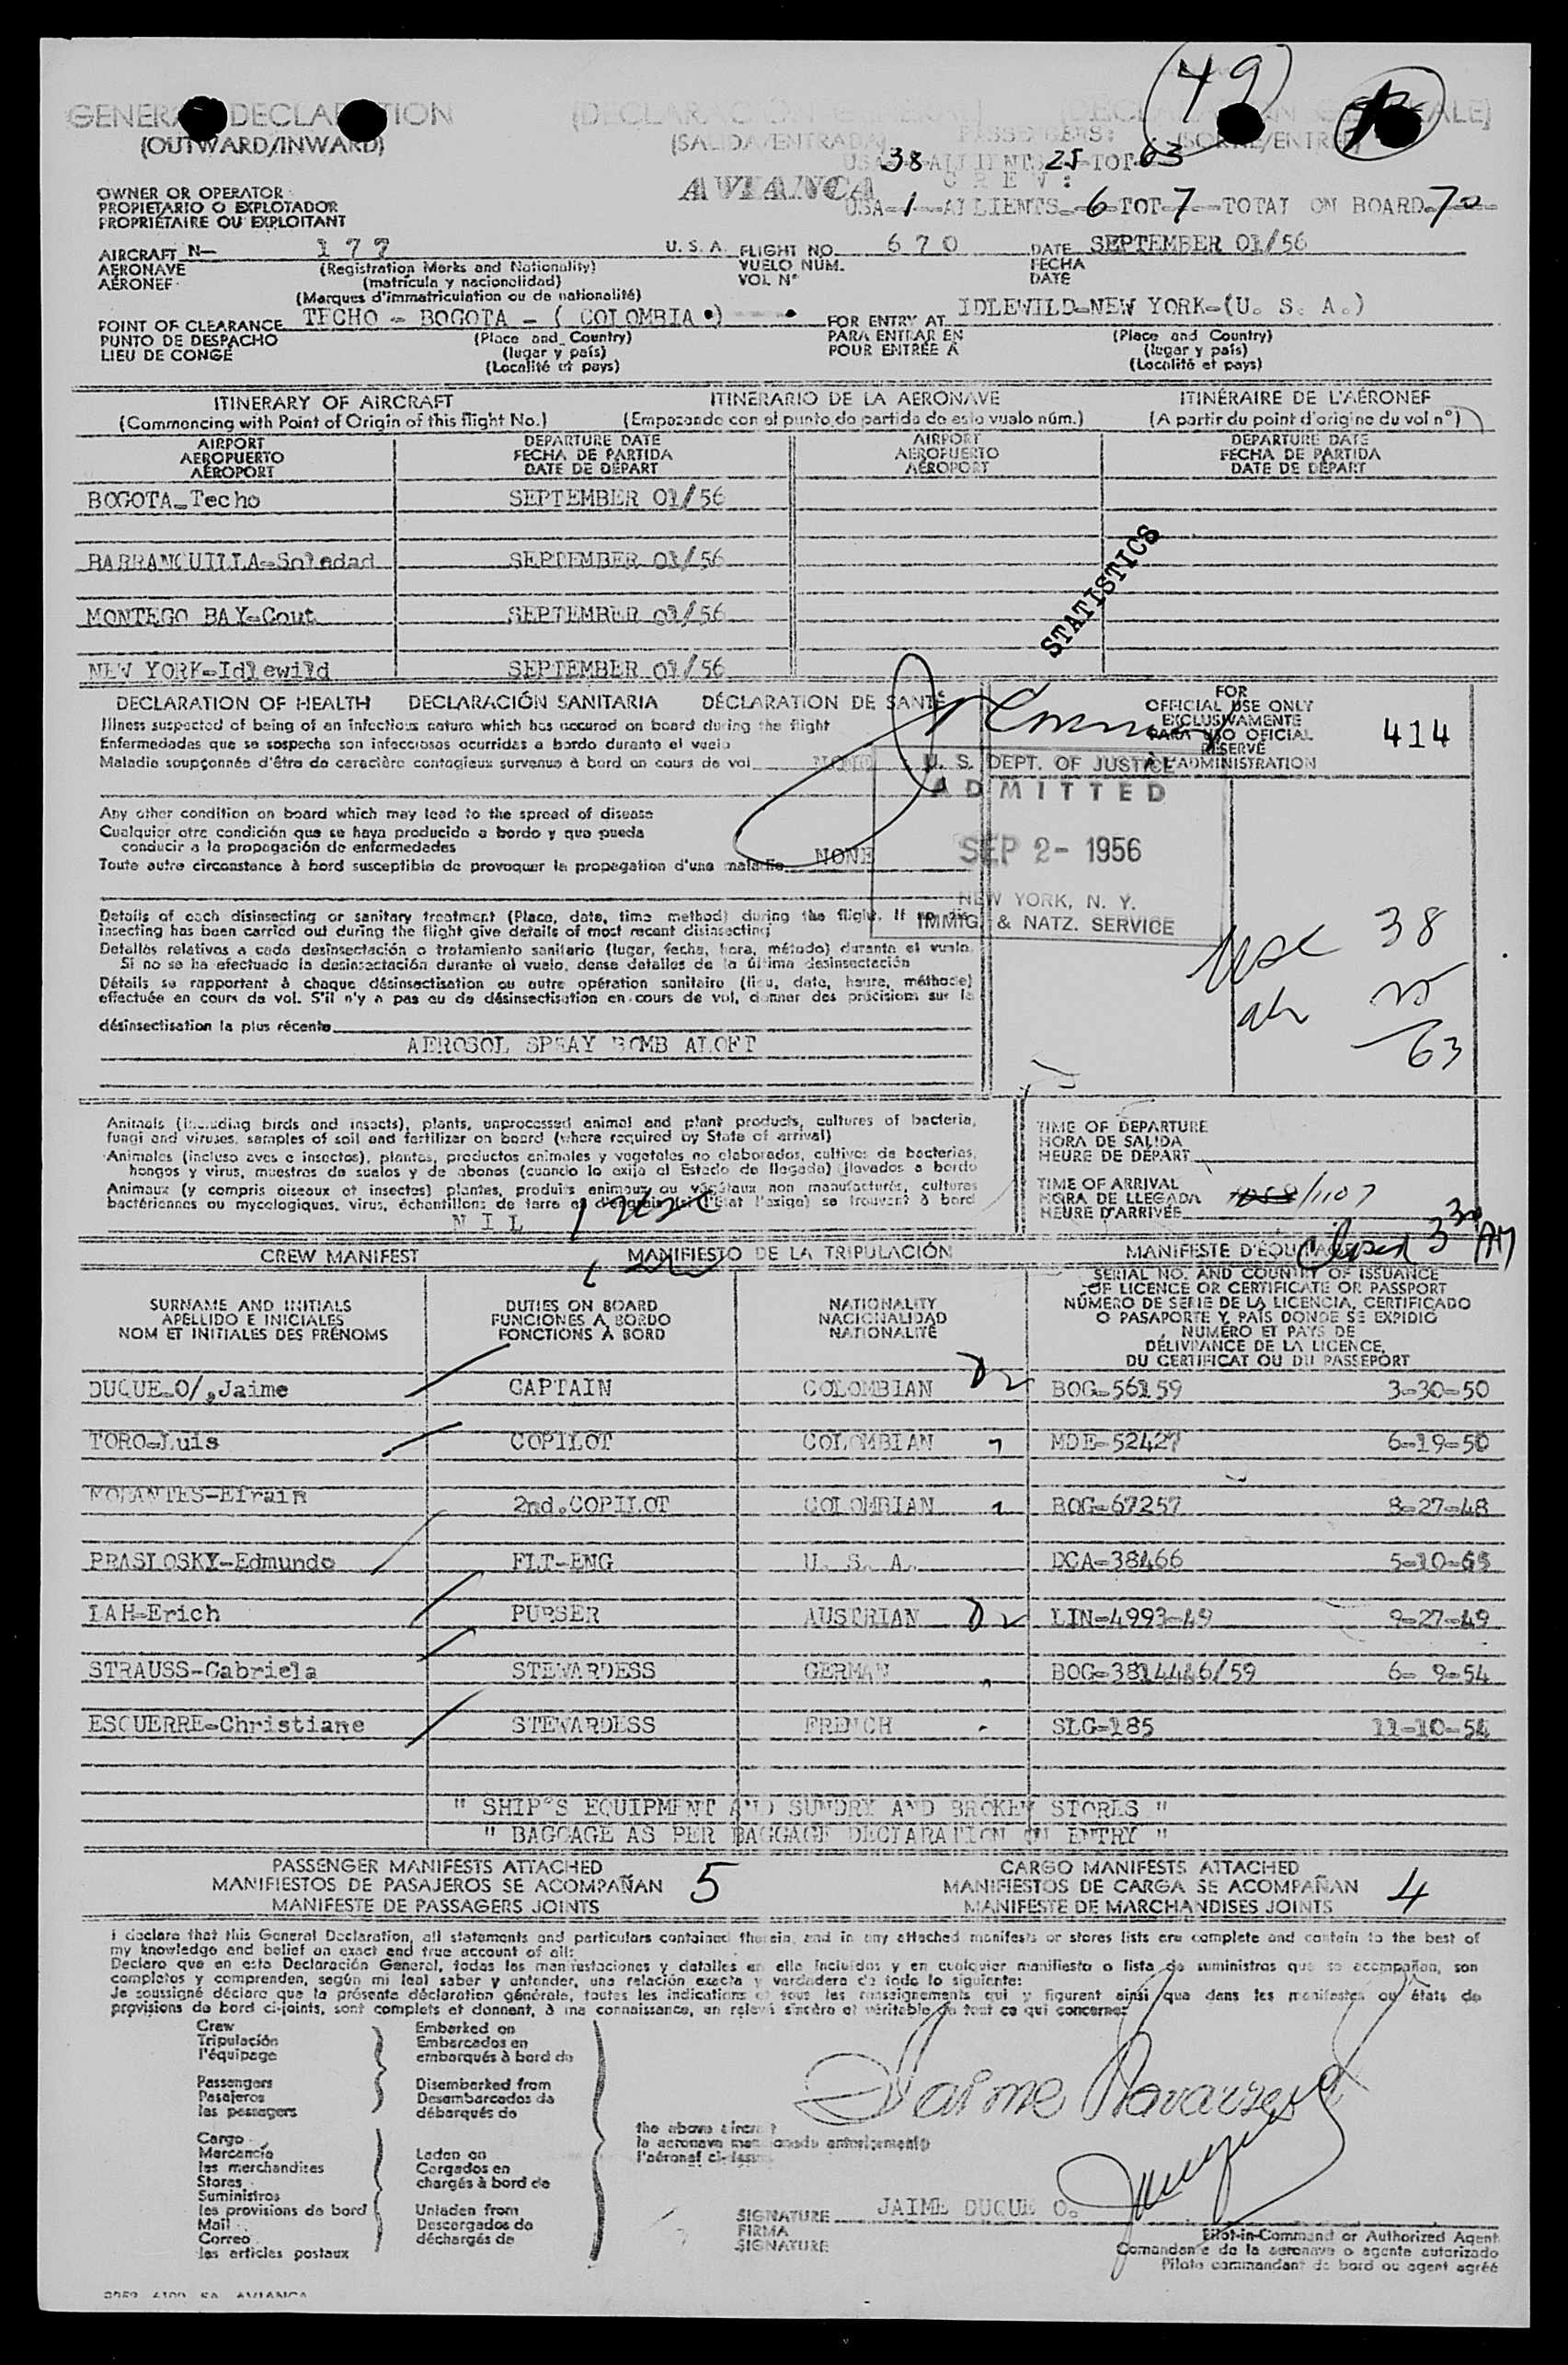 (49)
GENERAL DECLARATION
(OUTWARD/INWARD)
(SALIDA/ENTRADA)
PASSENGERS:
USA 38 ALLIENTS 25 TOT 63
CREW:
AVIANCA
USA-1-ALLIENTS-6-TOT-7-TOTAL ON BOARD-70
OWNER OR OPERATOR
PROPIETARIO O EXPLOTADOR
PROPRIÉTAIRE OU EXPLOITANT
AIRCRAFT N- 177 U. S. A. FLIGHT NO. 670 DATE SEPTEMBER 01/56
AERONAVE (Registration Marks and Nationality) VUELO NÚM. FECHA
AÉRONEF (matrícula y nacionalidad) VOL Nº DATE
(Marques d'immatriculation ou de nationalité)
POINT OF CLEARANCE TECHO - BOGOTA - ( COLOMBIA ) FOR ENTRY AT IDLEWILD-NEW YORK-(U. S. A.)
PUNTO DE DESPACHO (Place and Country) PARA ENTRAR EN (Place and Country)
LIEU DE CONGÉ (lugar y país) POUR ENTRÉE À (lugar y país)
(Localité et pays) (Localité et pays)
ITINERARY OF AIRCRAFT ITINERARIO DE LA AERONAVE ITINÉRAIRE DE L'AÉRONEF
(Commencing with Point of Origin of this flight No.) (Empezando con el punto de partida de este vuelo núm.) (A partir du point d'origine du vol nº)
AIRPORT DEPARTURE DATE AIRPORT DEPARTURE DATE
AEROPUERTO FECHA DE PARTIDA AEROPUERTO FECHA DE PARTIDA
AÉROPORT DATE DE DÉPART AÉROPORT DATE DE DÉPART
BOGOTA-Techo SEPTEMBER 01/56
BARRANQUILLA-Soledad SEPTEMBER 01/56
MONTEGO BAY-Gout SEPTEMBER 01/56
NEW YORK-Idlewild SEPTEMBER 01/56
STATISTICS
DECLARATION OF HEALTH DECLARACIÓN SANITARIA DÉCLARATION DE SANTÉ
Illness suspected of being of an infectious nature which has occured on board during the flight
Enfermedades que se sospecha son infecciosas ocurridas a bordo durante el vuelo
Maladie soupçonnée d'être de caractère contagieux survenue à bord en cours de vol NONE
FOR
OFFICIAL USE ONLY
EXCLUSIVAMENTE
PARA USO OFICIAL
RESERVÉ
À L'ADMINISTRATION
414
U. S. DEPT. OF JUSTICE
ADMITTED
SEP 2- 1956
NEW YORK, N. Y.
IMMIG. & NATZ. SERVICE
Any other condition on board which may lead to the spread of disease
Cualquier otra condición que se haya producido a bordo y que pueda
conducir a la propagación de enfermedades
Toute autre circonstance à bord susceptible de provoquer la propagation d'une maladie NONE
Details of each disinsecting or sanitary treatment (Place, date, time method) during the flight. If no dis-
insecting has been carried out during the flight give details of most recent disinsecting
Detalles relativos a cada desinsectación o tratamiento sanitario (lugar, fecha, hora, método) durante el vuelo.
Si no se ha efectuado la desinsectación durante el vuelo, dense detalles de la última desinsectación
Détails se rapportant à chaque désinsectisation ou autre opération sanitaire (lieu, date, heure, méthode)
effectuée en cours de vol. S'il n'y a pas eu de désinsectisation en cours de vol, donner des précisions sur la
désinsectisation la plus récente
AEROSOL SPRAY BOMB ALOFT
usc 38
al 25
63
Animals (including birds and insects), plants, unprocessed animal and plant products, cultures of bacteria,
fungi and viruses, samples of soil and fertilizer on board (where required by State of arrival)
Animales (incluso aves e insectos), plantas, productos animales y vegetales no elaborados, cultivos de bacterias,
hongos y virus, muestras de suelos y de abonos (cuando lo exija el Estado de llegada) llevados a bordo
Animaux (y compris oiseaux et insectes) plantes, produits animaux ou végétaux non manufacturés, cultures
bactériennes ou mycologiques, virus, échantillons de terre et d'engrais (si l'État l'exige) se trouvant à bord
NIL 1 usc
TIME OF DEPARTURE
HORA DE SALIDA
HEURE DE DÉPART
TIME OF ARRIVAL
HORA DE LLEGADA /1107
HEURE D'ARRIVÉE
Closed 3 30 AM
CREW MANIFEST MANIFIESTO DE LA TRIPULACIÓN MANIFESTE D'ÉQUIPAGE
SURNAME AND INITIALS DUTIES ON BOARD NATIONALITY SERIAL NO. AND COUNTRY OF ISSUANCE
APELLIDO E INICIALES FUNCIONES A BORDO NACIONALIDAD OF LICENCE OR CERTIFICATE OR PASSPORT
NOM ET INITIALES DES PRÉNOMS FONCTIONS À BORD NATIONALITÉ NÚMERO DE SERIE DE LA LICENCIA, CERTIFICADO
O PASAPORTE Y PAÍS DONDE SE EXPIDIÓ
NUMÉRO ET PAYS DE
DÉLIVRANCE DE LA LICENCE,
DU CERTIFICAT OU DU PASSEPORT
DUQUE-O/,Jaime CAPTAIN COLOMBIAN BOG-56159 3-30-50
TORO-Luis COPILOT COLOMBIAN MDE-52427 6-19-50
MORANTES-Efrain 2nd.COPILOT COLOMBIAN BOG-67257 8-27-48
PRASLOSKY-Edmundo FLT-ENG U. S. A. DCA-38466 5-10-
LAH-Erich PURSER AUSTRIAN LIN-4993-49 9-27-49
STRAUSS-Gabriela STEWARDESS GERMAN BOG-3814446/59 6- 9-54
ESCUERRE-Christiane STEWARDESS FRENCH SLG-185 11-10-54
" SHIP'S EQUIPMENT AND SUNDRY AND BROKEN STORES "
" BAGGAGE AS PER BAGGAGE DECLARATION ON ENTRY "
PASSENGER MANIFESTS ATTACHED CARGO MANIFESTS ATTACHED
MANIFIESTOS DE PASAJEROS SE ACOMPAÑAN 5 MANIFIESTOS DE CARGA SE ACOMPAÑAN 4
MANIFESTE DE PASSAGERS JOINTS MANIFESTE DE MARCHANDISES JOINTS
I declare that this General Declaration, all statements and particulars contained therein, and in any attached manifests or stores lists are complete and contain to the best of
my knowledge and belief an exact and true account of all:
Declaro que en esta Declaración General, todas las manifestaciones y detalles en ella incluidos y en cualquier manifiesto o lista de suministros que se acompañan, son
completos y comprenden, según mi leal saber y entender, una relación exacta y verdadera de todo lo siguiente:
Je soussigné déclare que la présente déclaration générale, toutes les indications et tous les renseignements qui y figurent ainsi que dans les manifestes ou états de
provisions de bord ci-joints, sont complets et donnent, à ma connaissance, un relevé sincère et véritable de tout ce qui concerne:
Crew Embarked on
Tripulación Embarcados en
l'équipage embarqués à bord de
Passengers Disembarked from
Pasajeros Desembarcados de
les passagers débarqués de
the above aircraft
la aeronave mencionada anteriormente
l'aéronef ci-dessus
Cargo
Mercancía Laden on
les merchandises Cargados en
Stores chargés à bord de
Suministros
les provisions de bord Unladen from
Mail Descargados de
Correo déchargés de
les articles postaux
Jaime
SIGNATURE JAIME DUQUE O.
FIRMA
SIGNATURE
Pilot-in-Command or Authorized Agent
Comandante de la aeronave o agente autorizado
Pilote commandant de bord ou agent agréé